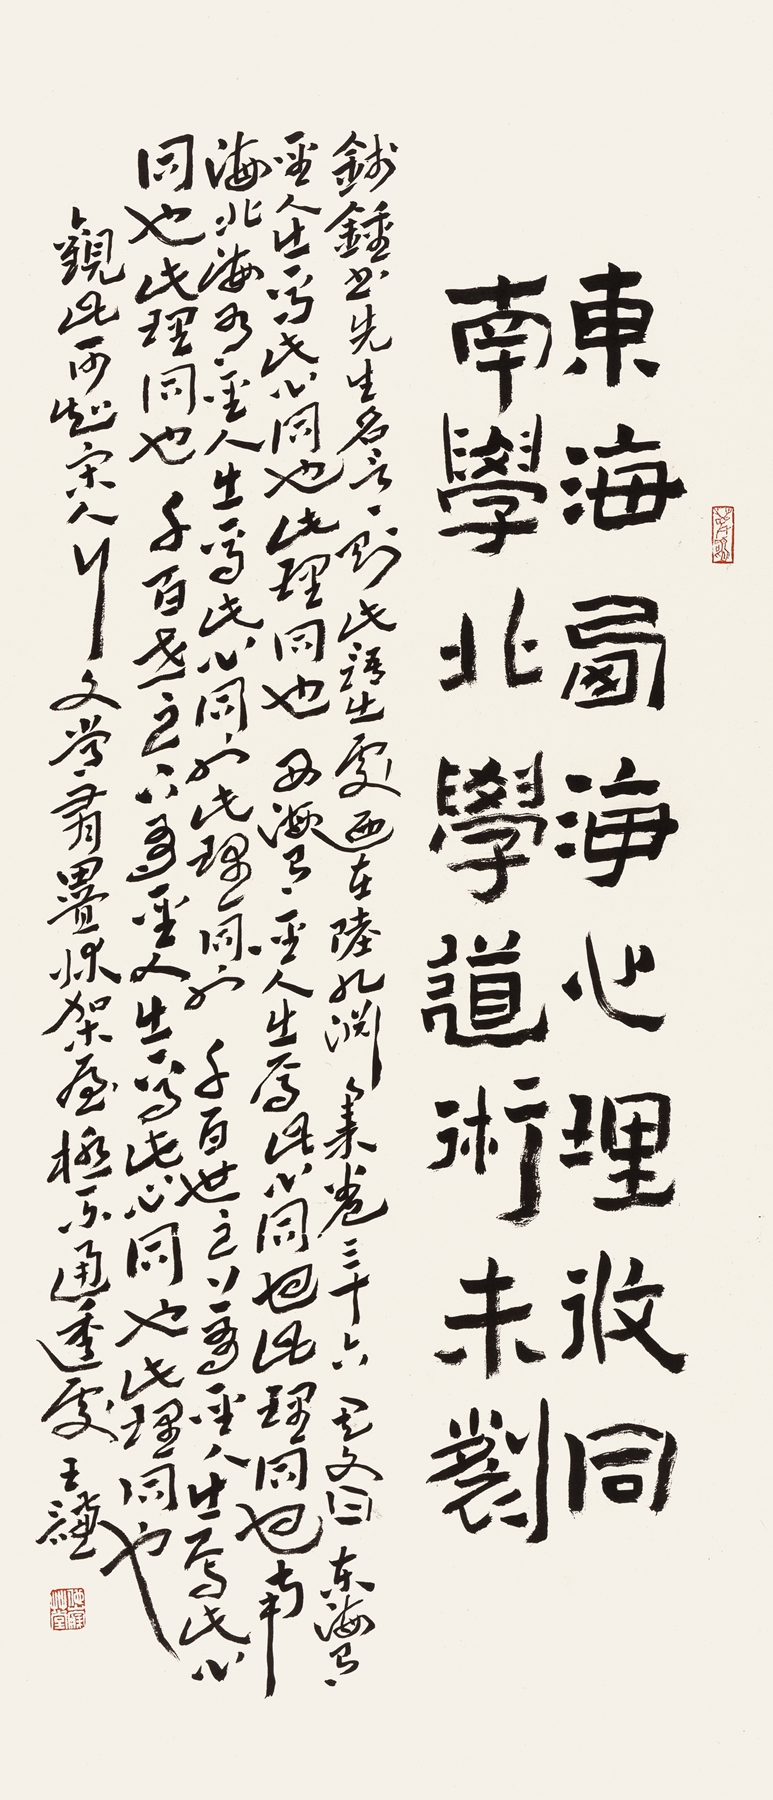 東海西海心理攸同
南學北學道術未裂
錢鍾書先生名言一則此語出處迺在陸九淵集卷三十六其文曰东海有
聖人出焉此心同也此理同也西海有聖人出焉此心同也此理同也南
海北海有聖人出焉此心同也此理同也千百世之上有聖人出焉此心
同也此理同也千百世之下有聖人出焉此心同也此理同也
觀此可知宋人行文常有疊牀架屋極不通透處王謙